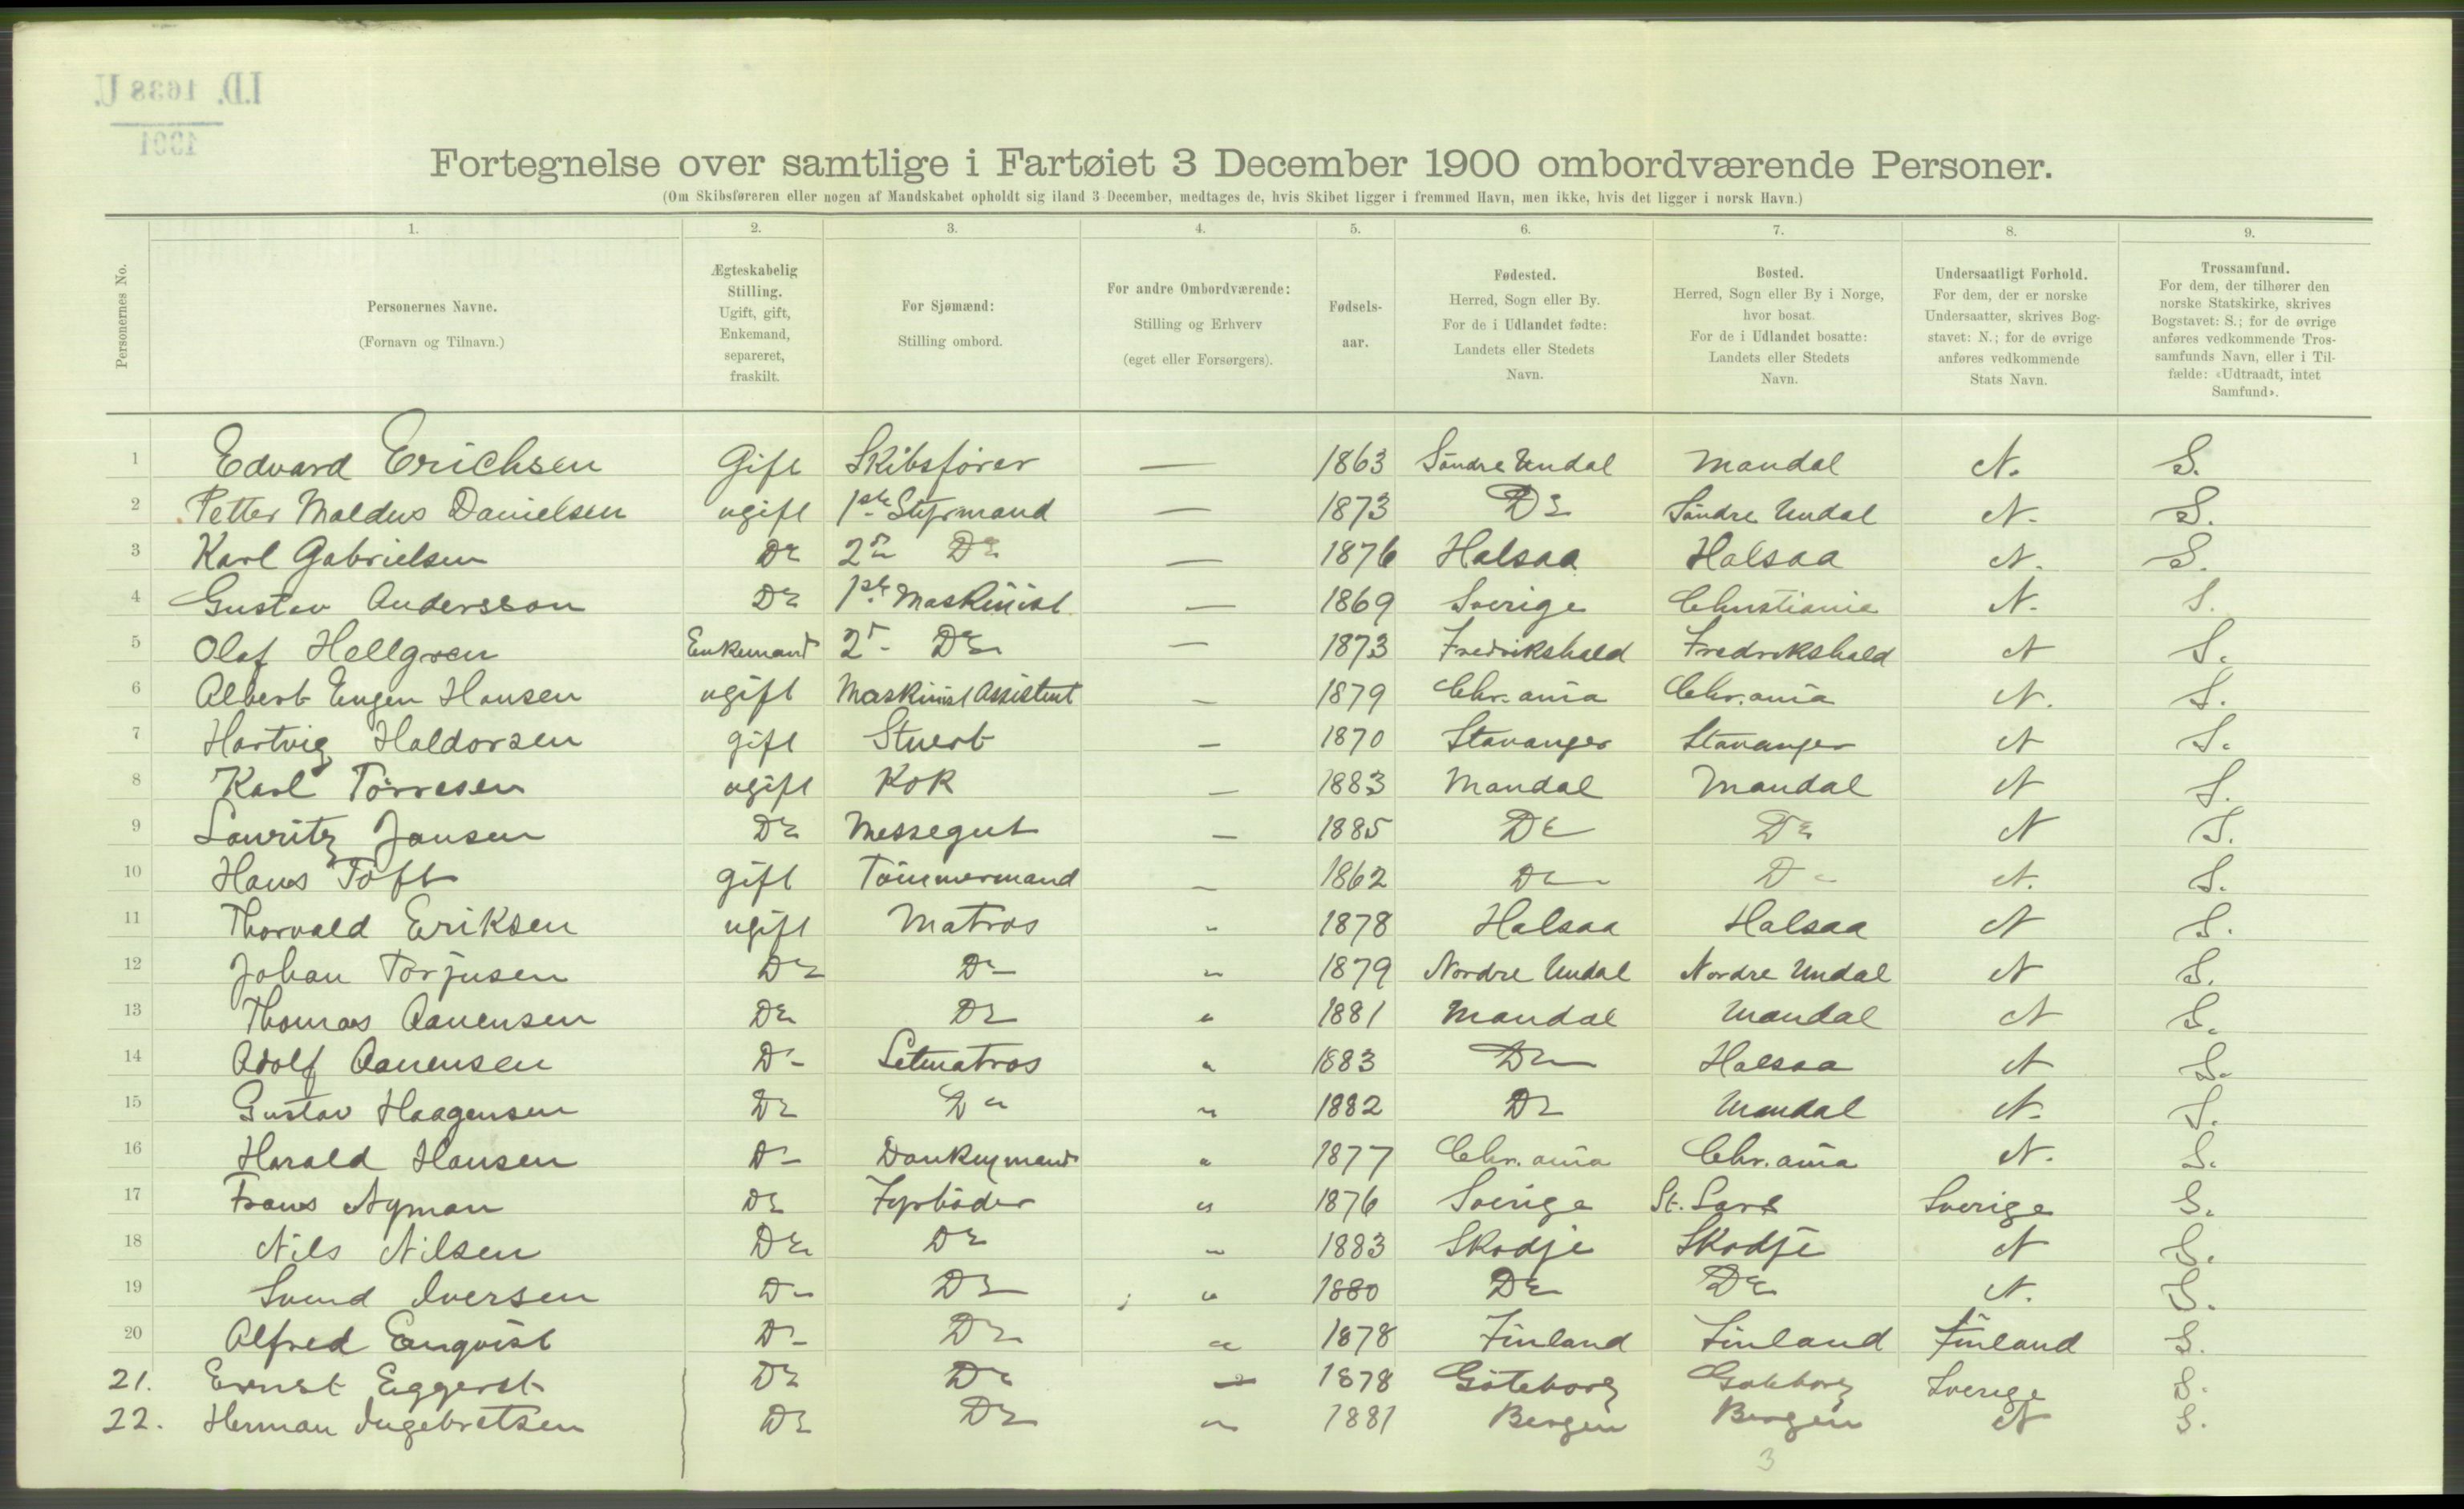 I.D. 1638 U.
1901
Fortegnelse over samtlige i Fartøiet 3 December 1900 ombordværende Personer.
(Om Skibsføreren eller nogen af Mandskabet opholdt sig iland 3 December, medtages de, hvis Skibet ligger i fremmed Havn, men ikke, hvis det ligger i norsk Havn.)
1. 2. 3. 4. 5. 6. 7. 8. 9.
Personernes No.
Personernes Navne.
(Fornavn og Tilnavn.)
Ægteskabelig
Stilling.
Ugift, gift,
Enkemand,
separeret,
fraskilt.
For Sjømænd:
Stilling ombord.
For andre Ombordværende:
Stilling og Erhverv
(eget eller Forsørgers).
Fødsels-
aar.
Fødested.
Herred, Sogn eller By.
For de i Udlandet fødte:
Landets eller Stedets
Navn.
Bosted.
Herred, Sogn eller By i Norge,
hvor bosat.
For de i Udlandet bosatte:
Landets eller Stedets
Navn.
Undersaatligt Forhold.
For dem, der er norske
Undersaatter, skrives Bog-
stavet: N.; for de øvrige
anføres vedkommende
Stats Navn.
Trossamfund.
For dem, der tilhører den
norske Statskirke, skrives
Bogstavet: S.; for de øvrige
anføres vedkommende Tros-
samfunds Navn, eller i Til-
fælde: «Udtraadt, intet
Samfund».
1 Edvard Erichsen Gift Skibsfører — 1863 Söndre Undal Mandal N. S.
2 Petter Maldus Danielsen ugift 1ste Styrmand — 1873 Do Söndre Undal N. S.
3 Karl Gabrielsen Do 2n Do — 1876 Halsaa Halsaa N. S.
4 Gustav Andersson Do 1ste Maskinist — 1869 Sverige Christiania N. S.
5 Olaf Hellgren Enkemand 2n Do — 1873 Fredrikshald Fredrikshald N S.
6 Albert Eugen Hansen ugift Maskinist Assistent — 1879 Chr.ania Chr.ania N. S.
7 Hartvig Haldorsen gift Stuert — 1870 Stavanger Stavanger N S.
8 Karl Törresen ugift Kok — 1883 Mandal Mandal N S.
9 Lauritz Jansen Do Messegut — 1885 Do Do N S.
10 Hans Toft gift Tömmermand — 1862 Do Do N. S.
11 Thorvald Eriksen ugift Matros " 1878 Halsaa Halsaa N S.
12 Johan Torjusen Do Do " 1879 Nordre Undal Nordre Undal N S.
13 Thomas Aanensen Do Do " 1881 Mandal Mandal N S.
14 Adolf Aanensen Do Letmatros " 1883 Do Halsaa N S.
15 Gustav Haagensen Do Do " 1882 Do Mandal N. S.
16 Harald Hansen Do Donkeymand " 1877 Chr.ania Chr.ania N. S.
17 Frans Nyman Do Fyrböder " 1876 Sverige St. Sverige S.
18 Nils Nilsen Do Do " 1883 Skodje Skodje N S.
19 Svend Iversen Do Do " 1880 Do Do N. S.
20 Alfred Enqvist Do Do " 1878 Finland Finland Finland S.
21. Ernst Eggerst Do Do " 1878 Göteborg Göteborg Sverige S.
22. Herman Ingebretsen Do Do " 1881 Bergen Bergen N S.
3